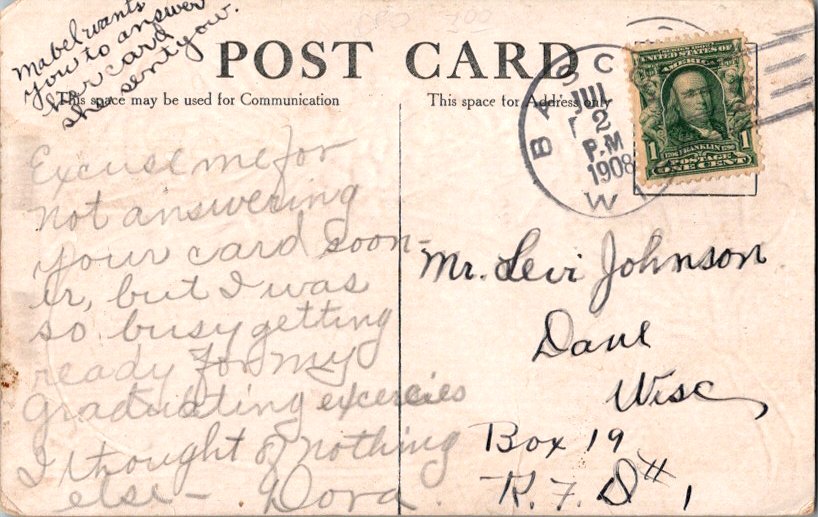 Mabel wants
you to answer
her card
she sent you.
POST CARD
This space may be used for Communication
This space for Address only
Excuse me for
not answering
your card soon-
er, but I was
so busy getting
ready for my
graduating excercies
I thought of nothing
else — Dora.
BASCO
JUL
2
P.M
1908
W
SERIES 1902
UNITED STATES OF
AMERICA
1706 FRANKLIN 1790
1 POSTAGE 1
ONE CENT
Mr. Levi Johnson
Dane
Wisc
Box 19
R.F.D # 1